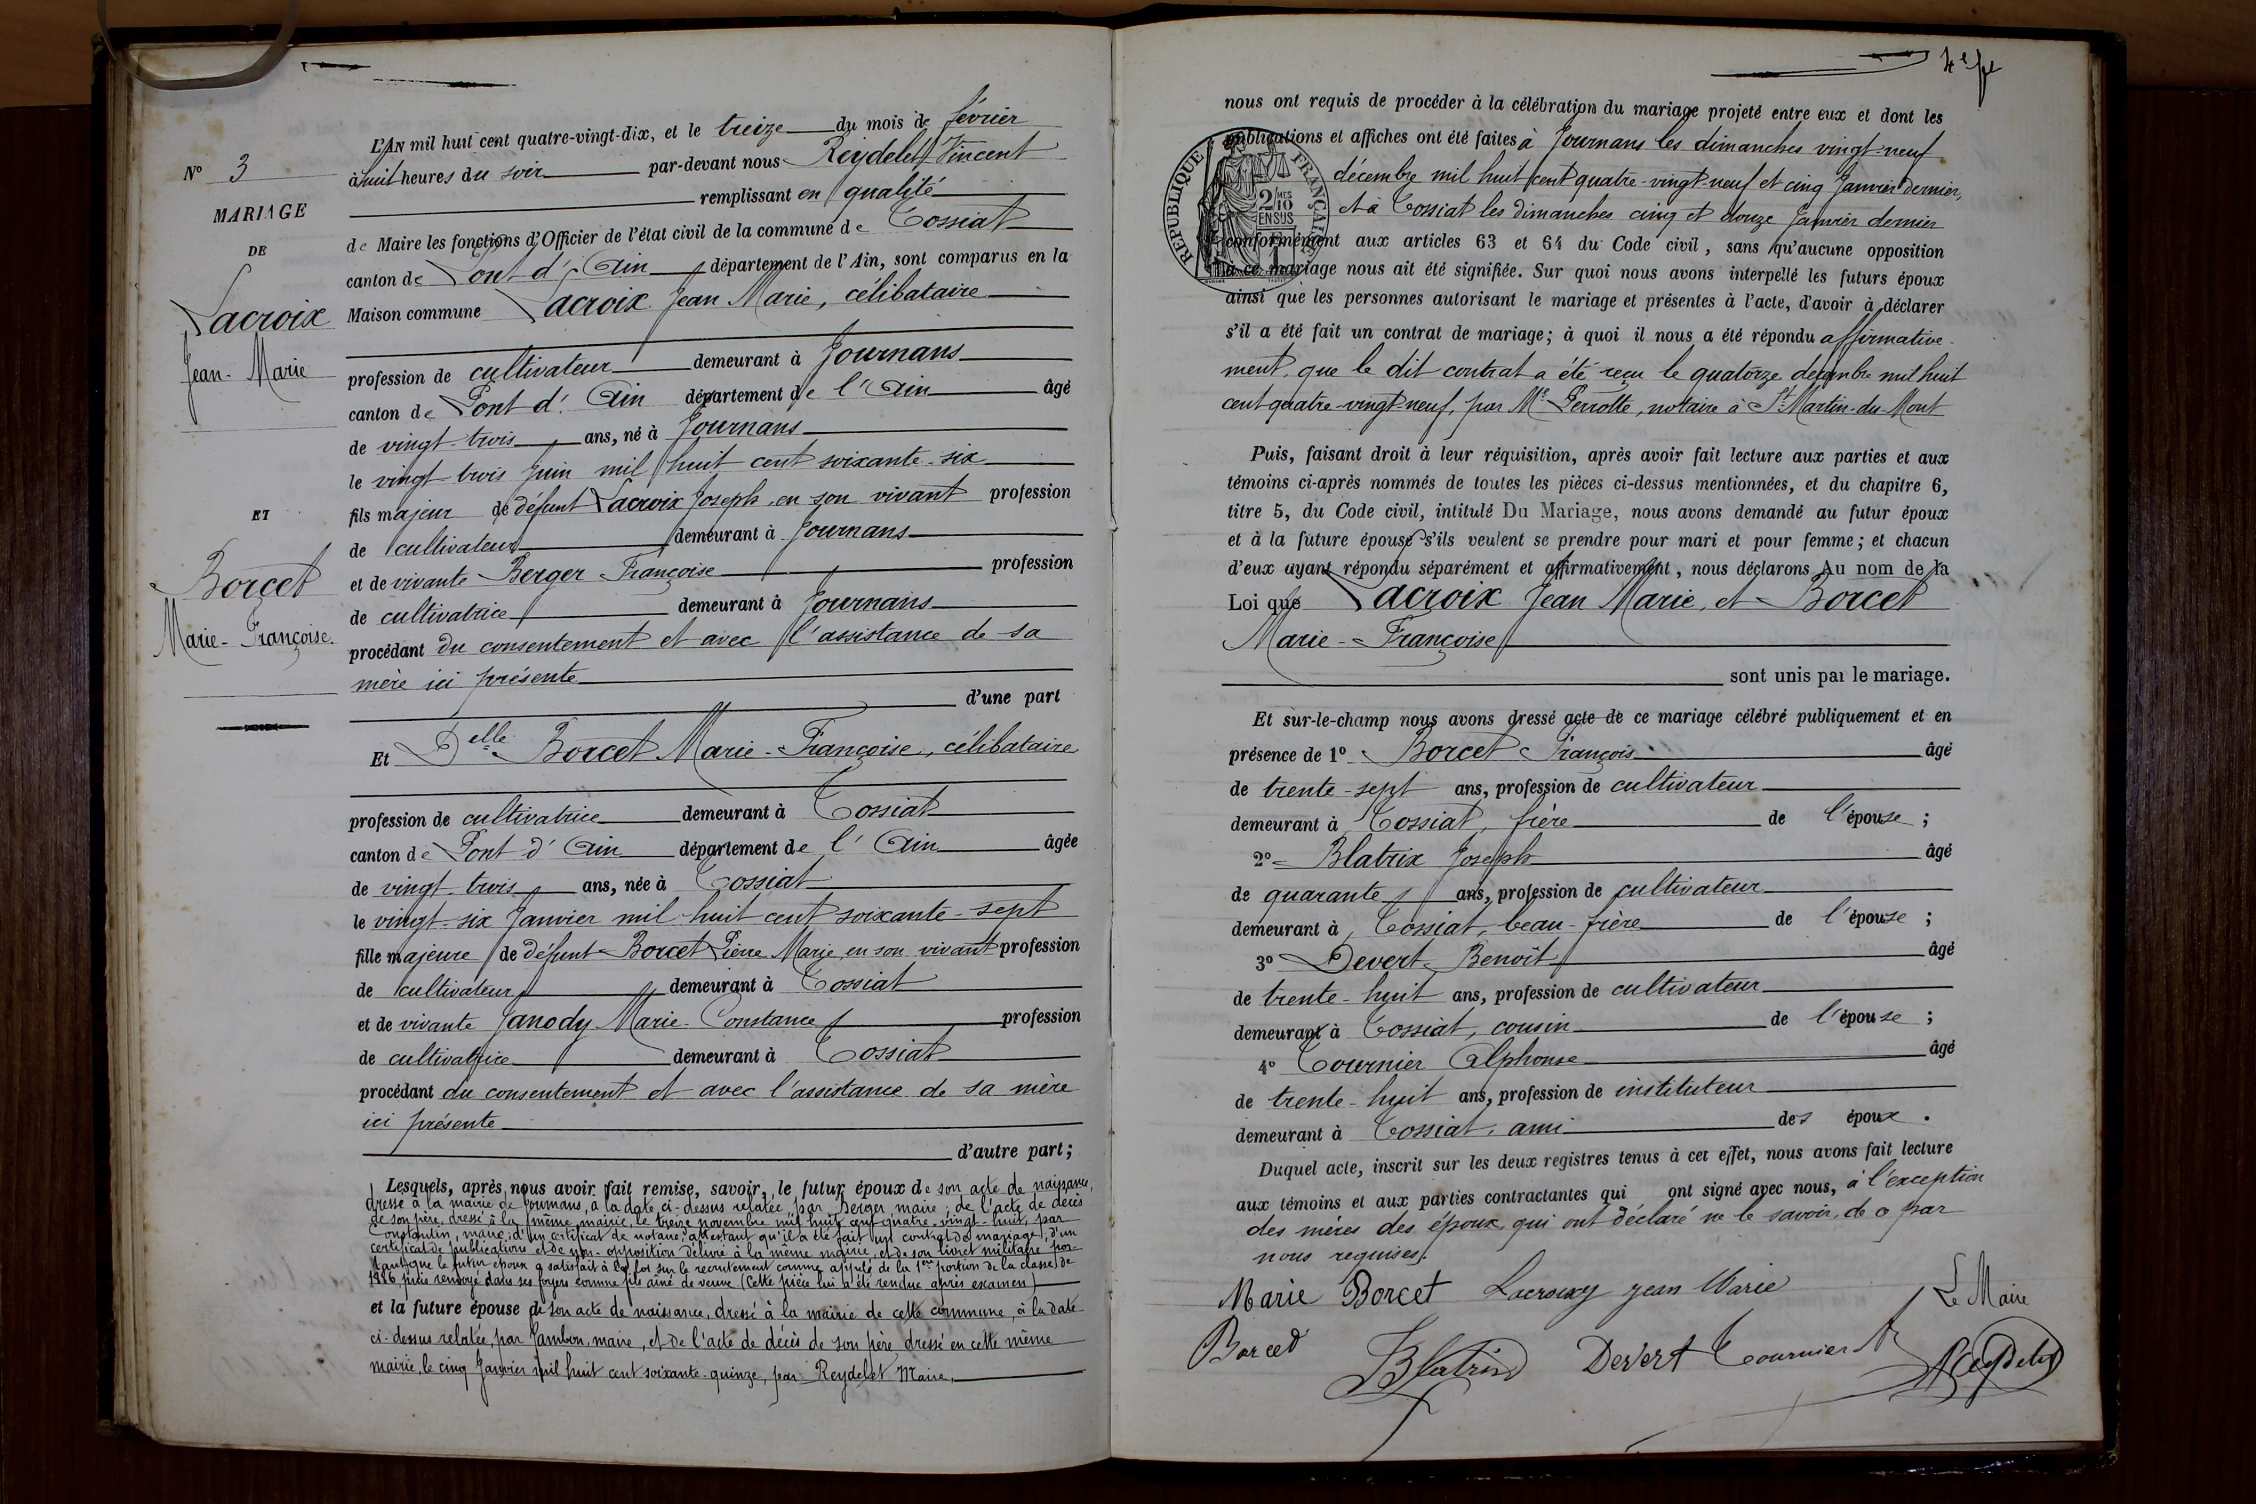 N° 3
MARIAGE
DE
Lacroix
Jean-Marie
ET
Borcet
Marie-Françoise.
L'AN mil huit cent quatre-vingt-dix, et le treize du mois de février
à huit heures du soir par-devant nous Reydelet Vincent
remplissant en qualité
de Maire les fonctions d'Officier de l'état civil de la commune de Tossiat
canton de Pont d'Ain département de l'Ain, sont comparus en la
Maison commune Lacroix Jean Marie, célibataire
profession de cultivateur demeurant à Journans
canton de Pont d'Ain département de l'Ain âgé
de vingt-trois ans, né à Journans
le vingt-trois Juin mil huit cent soixante-six
fils majeur de défunt Lacroix Joseph, en son vivant profession
de cultivateur demeurant à Journans
et de vivante Berger Françoise profession
de cultivatrice demeurant à Journans
procédant du consentement et avec l'assistance de sa
mère ici présente
d'une part
Et Delle Borcet Marie-Françoise, célibataire
profession de cultivatrice demeurant à Tossiat
canton de Pont d'Ain département de l'Ain âgée
de vingt-trois ans, née à Tossiat
le vingt-six Janvier mil huit cent soixante-sept
fille majeure de défunt Borcet Pierre Marie, en son vivant profession
de cultivateur demeurant à Tossiat
et de vivante Janody Marie-Constance profession
de cultivatrice demeurant à Tossiat
procédant du consentement et avec l'assistance de sa mère
ici présente
d'autre part;
Lesquels, après nous avoir fait remise, savoir, le futur époux de son acte de naissance,
dressé à la mairie de Journans, à la date ci-dessus relatée, par Berger, maire; de l'acte de décès
de son père, dressé à la même mairie, le treize novembre mil huit cent quatre-vingt-huit, par
Constantin, maire; d'un certificat de notaire attestant qu'il a été fait un contrat de mariage, d'un
certificat de publications et de non-opposition délivré à la même mairie, et de son livret militaire por-
tant que le futur époux a satisfait à la loi sur le recrutement comme appelé de la 1ère portion de la classe de
1886, puis renvoyé dans ses foyers comme fils aîné de veuve (Cette pièce lui a été rendue après examen)
et la future épouse de son acte de naissance, dressé à la mairie de cette commune, à la date
ci-dessus relatée, par Jambon, maire, et de l'acte de décès de son père dressé en cette même
mairie, le cinq Janvier mil huit cent soixante-quinze, par Reydelet Maire,
nous ont requis de procéder à la célébration du mariage projeté entre eux et dont les
publications et affiches ont été faites à Journans les dimanches vingt-neuf
décembre mil huit cent quatre-vingt-neuf et cinq Janvier dernier,
et à Tossiat les dimanches cinq et douze Janvier dernier
conformément aux articles 63 et 64 du Code civil, sans qu'aucune opposition
à ce mariage nous ait été signifiée. Sur quoi nous avons interpellé les futurs époux
ainsi que les personnes autorisant le mariage et présentes à l'acte, d'avoir à déclarer
s'il a été fait un contrat de mariage; à quoi il nous a été répondu affirmative-
ment, que le dit contrat a été reçu le quatorze décembre mil huit
cent quatre-vingt-neuf, par Me Perrotte, notaire à St Martin-du-Mont
RÉPUBLIQUE FRANÇAISE
2/10 EN SUS
Puis, faisant droit à leur réquisition, après avoir fait lecture aux parties et aux
témoins ci-après nommés de toutes les pièces ci-dessus mentionnées, et du chapitre 6,
titre 5, du Code civil, intitulé Du Mariage, nous avons demandé au futur époux
et à la future épouse s'ils veulent se prendre pour mari et pour femme; et chacun
d'eux ayant répondu séparément et affirmativement, nous déclarons Au nom de la
Loi que Lacroix Jean Marie, et Borcet
Marie-Françoise
sont unis par le mariage.
Et sur-le-champ nous avons dressé acte de ce mariage célébré publiquement et en
présence de 1° Borcet François âgé
de trente-sept ans, profession de cultivateur
demeurant à Tossiat, frère de l'épouse;
2° Blatrix Joseph âgé
de quarante ans, profession de cultivateur
demeurant à Tossiat, beau-frère de l'épouse;
3° Devert Benoît âgé
de trente-huit ans, profession de cultivateur
demeurant à Tossiat, cousin de l'épouse;
4° Tournier Alphonse âgé
de trente-huit ans, profession de instituteur
demeurant à Tossiat, ami des époux.
Duquel acte, inscrit sur les deux registres tenus à cet effet, nous avons fait lecture
aux témoins et aux parties contractantes qui ont signé avec nous, à l'exception
des mères des époux, qui ont déclaré ne le savoir, de ce par
nous requises.
Marie Borcet Lacroix jean Marie Le Maire
Borcet Blatrix Devert Tournier A Reydelet